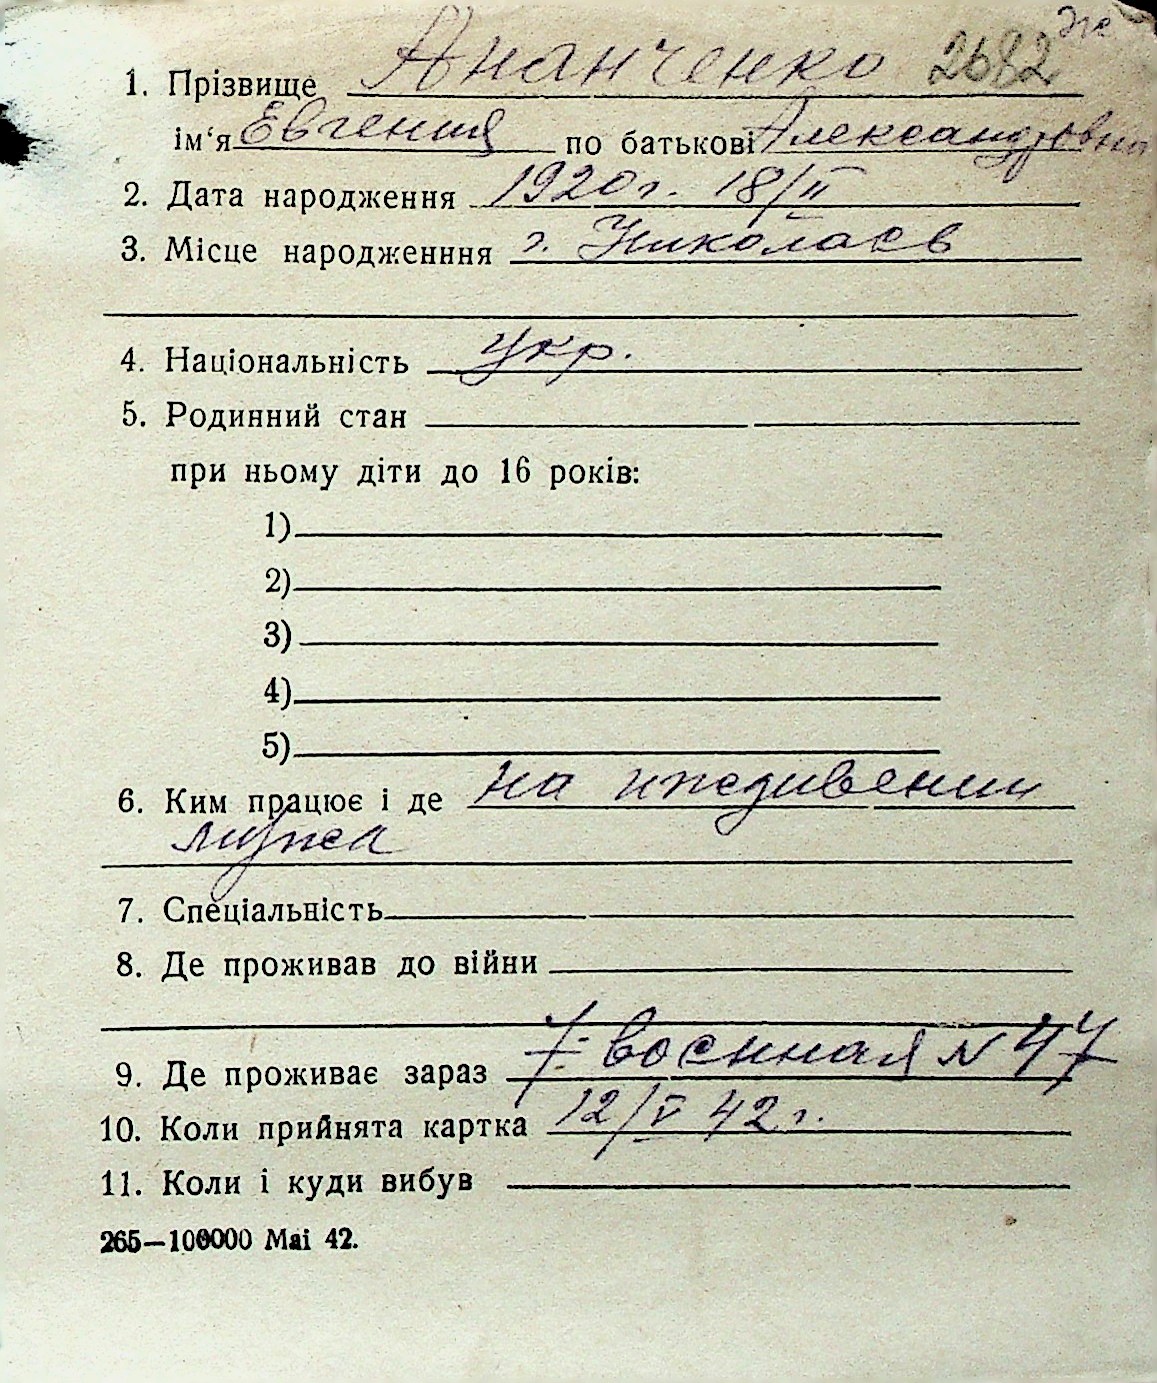 Же
1. Прізвище Ананченко 2682
ім‘я Евгения по батькові Александровна
2. Дата народження 1920г. 18/II
3. Місце народженння г. Николаев
4. Національність укр.
5. Родинний стан
при ньому діти до 16 років:
1)
2)
3)
4)
5)
6. Ким працює і де на иждивении
мужа
7. Спеціальність
8. Де проживав до війни
9. Де проживає зараз 7. военная № 47
10. Коли прийнята картка 12/V 42 г.
11. Коли і куди вибув
265—100000 Маі 42.